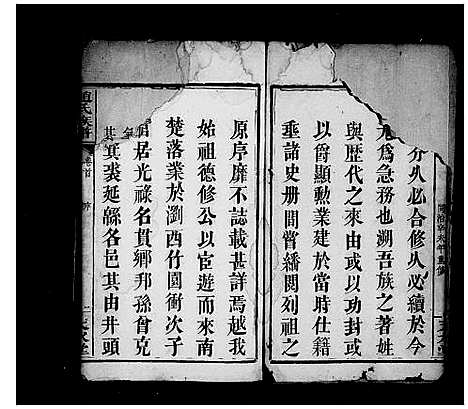 分久必合修久必續於今
尤爲急務也溯吾族之著姓
與歷代之來由或以功封或
以爵顯勲業建於當時仕籍
垂諸史册間嘗繙閱列祖之
原序靡不誌載甚詳焉越我
始祖德修公以宦遊而來南
楚落業於瀏西竹園衝次子
居光祿名貫鄉邦孫曾克
其裘延緜各邑其由井頭
氏族
卷首
序